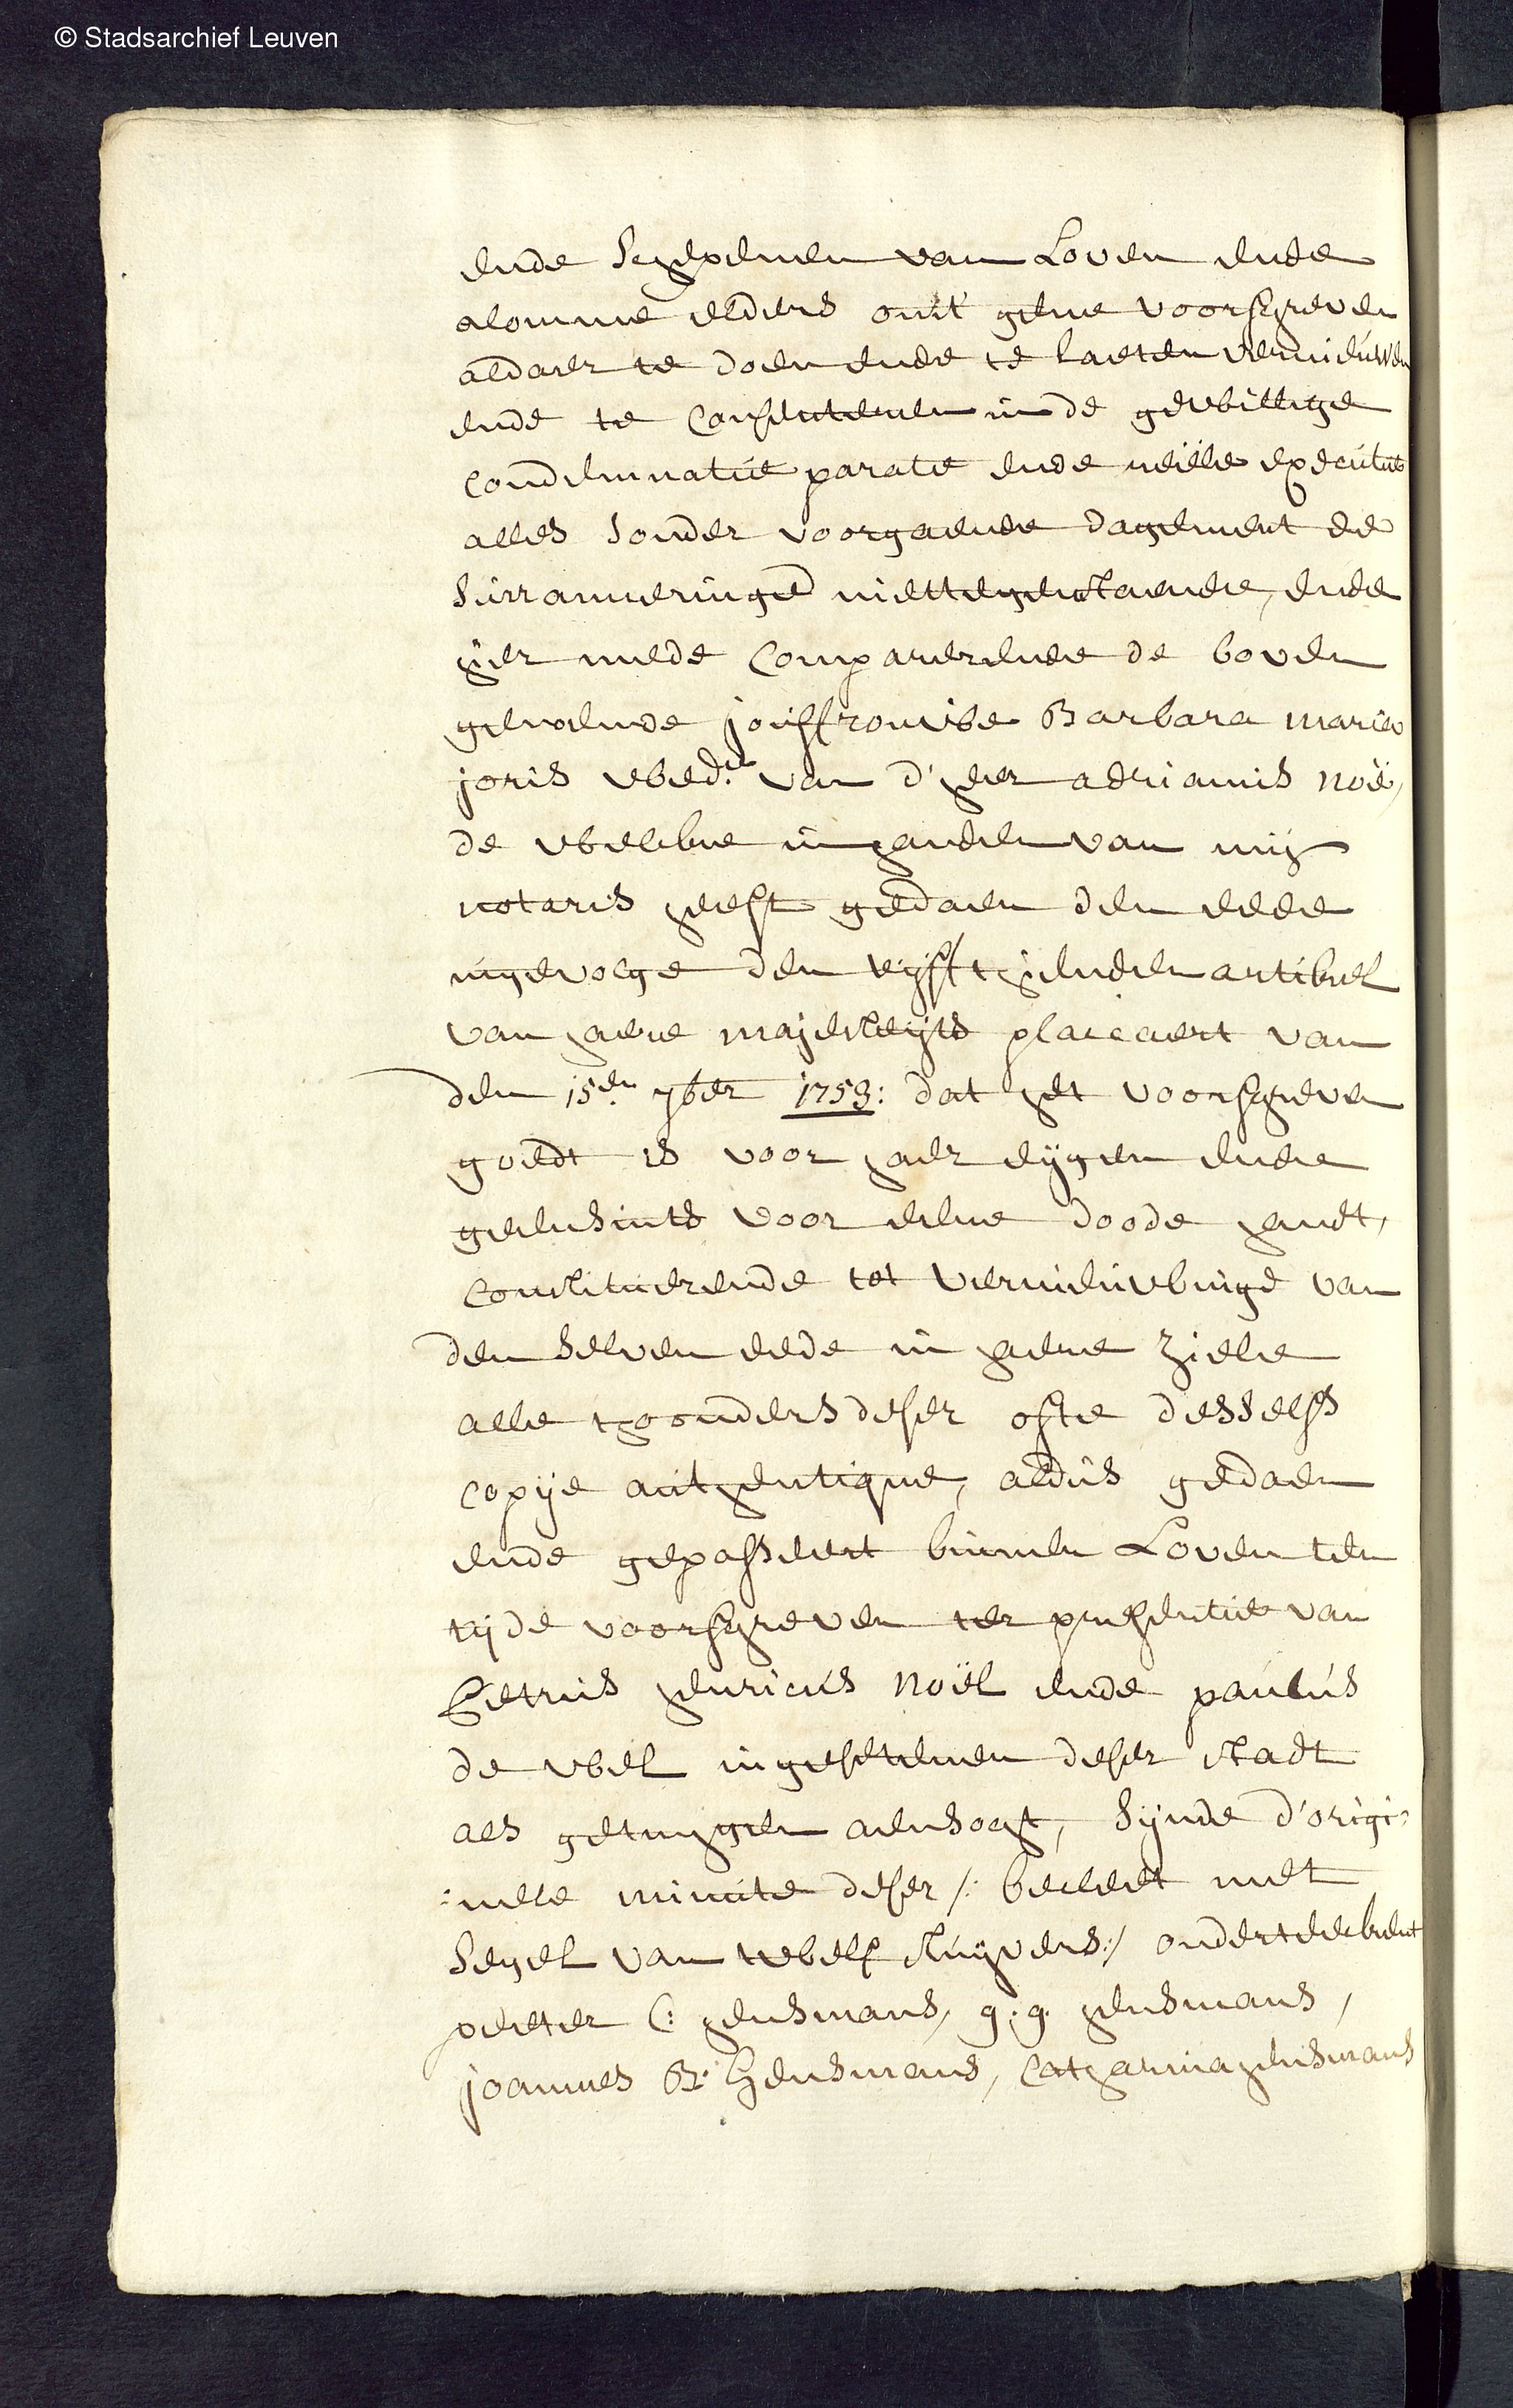 © Stadsarchief Leuven
ende Schepenen van Loven ende
alomme elders om 't gene voorschreven
aldaer te doen ende te laeten vernieuwen
ende te consenteren in de gewillige
condemnatie parate ende reële executie
alles sonder voorgaende dagement de
surranneringe niettegenstaende, ende
hier mede comparerende de boven
genoemde jouffrouwe Barbara maria
joris wed.e van d'heer adrianus noë,
de welcke in handen van mij
notaris heeft gedaen den eede
ingevolge den vijfthienden artikel
van haere majesteijts placcaert van
den 15en 7ber 1753: dat het voorschreven
goedt is voor haer eijgen ende
geensints voor eene doode handt,
constituerende tot vernieuwinge van
den selven eede in haere ziele
alle thoonders deser ofte desselfs
copije authentique, aldus gedaen
ende gepasseert binnen Loven ten
tijde voorschreven ter presentie van
Petrus henricus noël ende paulus
de wel ingesetenen deser stadt
als getuygen aensocht, sijnde d'origi:
:nele minute deser /: becleet met
segel van twelf stuyvers :/ onderteekent
peeter C: hensmans, g: g. hensmans,
joannes B: Hensmans, Catharina hensmans